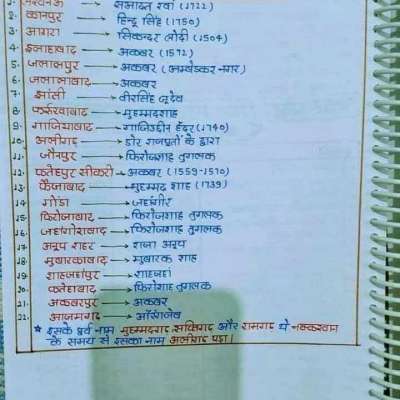 1. लखनऊ → सआदत खाँ (1722)
2. कानपुर → हिन्दू सिंह (1750)
3. आगरा → सिकन्दर लोदी (1504)
4. इलाहाबाद → अकबर (1572)
5. जलालपुर → अकबर (अम्बेडकर नगर)
6. जलालाबाद → अकबर
7. झांसी → वीरसिंह जूदेव
8. फर्रुखाबाद → मुहम्मदशाह
9. गाजियाबाद → गाजिउद्दीन हैदर (1740)
10. अलीगढ़ → डोर राजपूतों के द्वारा
11. जौनपुर → फिरोजशाह तुगलक
12. फतेहपुर सीकरी → अकबर (1559-1570)
13. फैजाबाद → मुहम्मद शाह (1739)
14. गोंडा → जहांगीर
15. फिरोजाबाद → फिरोजशाह तुगलक
16. जहांगीराबाद → फिरोजशाह तुगलक
17. अनूप शहर → राजा अनूप
18. मुबारकाबाद → मुबारक शाह
19. शाहजहांपुर → शाहजहां
20. फतेहाबाद → फिरोशाह तुगलक
21. अकबरपुर → अकबर
22. आजमगढ़ → औरंगजेब
* इसके पूर्व नाम मुहम्मदगढ़ साबितगढ़ और रामगढ़ थे नजफखान
के समय से इसका नाम अलीगढ़ पड़ा।